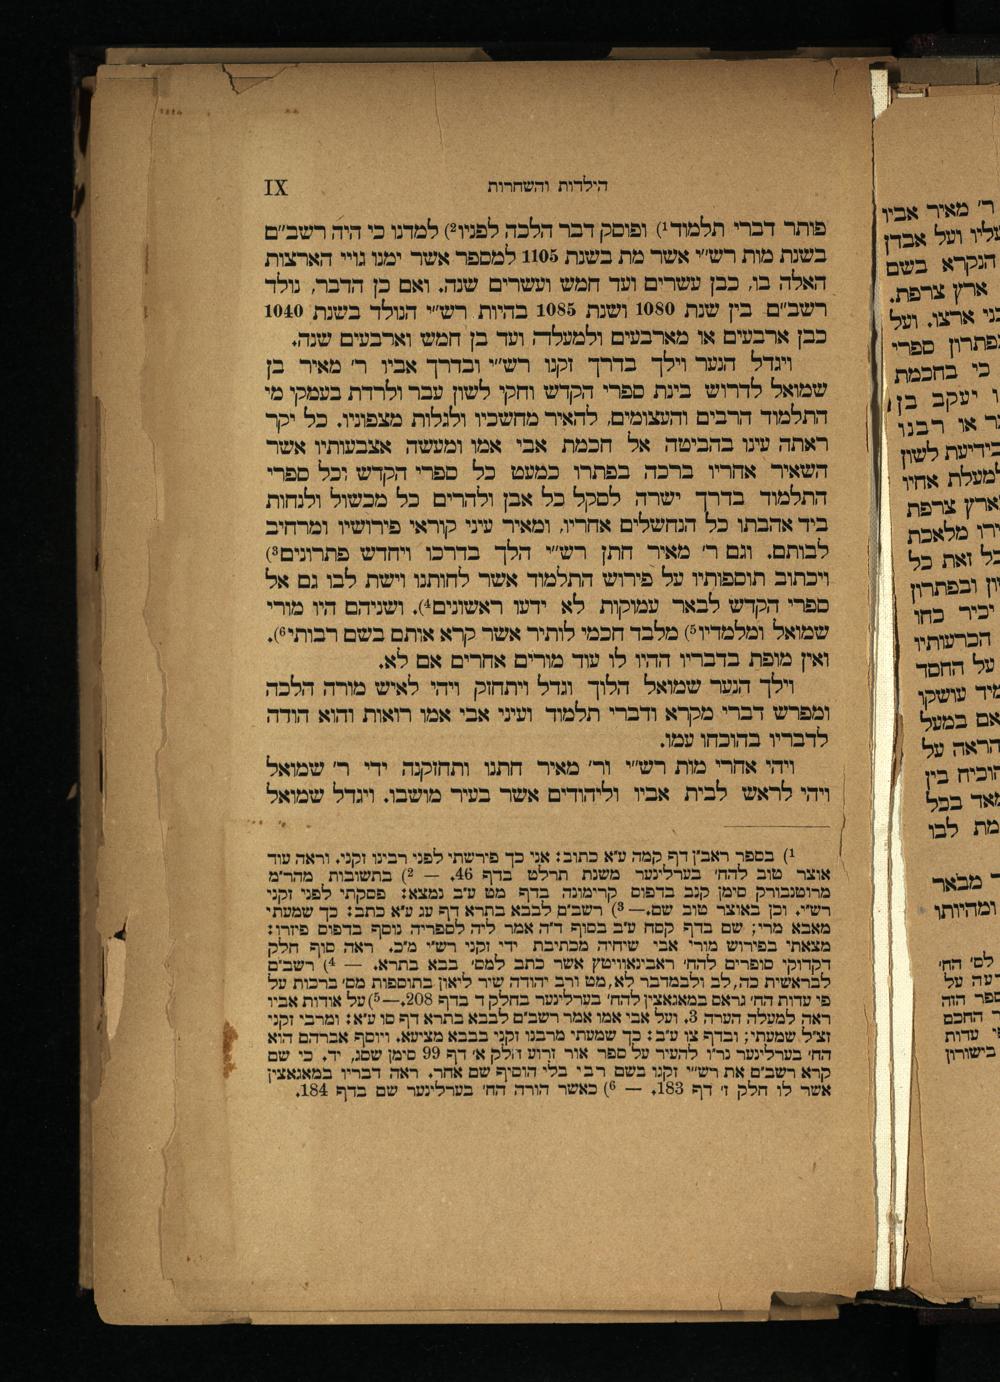 הילדות והשחרות
IX
פותר דברי תלמוד¹) ופוסק דבר הלכה לפניו²) למדנו כי היה רשב״ם
בשנת מות רש״י אשר מת בשנת 1105 למספר אשר ימנו גויי הארצות
האלה בו, כבן עשרים ועד חמש ועשרים שנה. ואם כן הדבר, נולד
רשב״ם בין שנת 1080 ושנת 1085 בהיות רש״י הנולד בשנת 1040
כבן ארבעים או מארבעים ולמעלה ועד בן חמש וארבעים שנה.
ויגדל הנער וילך בדרך זקנו רש״י ובדרך אביו ר׳ מאיר בן
שמואל לדרוש בינת ספרי הקדש וחקי לשון עבר ולרדת בעמקי מי
התלמוד הרבים והעצומים, להאיר מחשכיו ולגלות מצפוניו. כל יקר
ראתה עינו בהביטה אל חכמת אבי אמו ומעשה אצבעותיו אשר
השאיר אחריו ברכה בפתרו כמעט כל ספרי הקדש וכל ספרי
התלמוד בדרך ישרה לסקל כל אבן ולהרים כל מכשול ולנחות
ביד אהבתו כל הנחשלים אחריו, ומאיר עיני קוראי פירושיו ומרחיב
לבותם. וגם ר׳ מאיר חתן רש״י הלך בדרכו ויחדש פתרונים³)
ויכתוב תוספותיו על פירוש התלמוד אשר לחותנו וישת לבו גם אל
ספרי הקדש לבאר עמוקות לא ידעו ראשונים⁴). ושניהם היו מורי
שמואל ומלמדיו⁵) מלבד חכמי לותיר אשר קרא אותם בשם רבותי⁶).
ואין מופת בדבריו ההיו לו עוד מורים אחרים אם לא.
וילך הנער שמואל הלוך וגדל ויתחזק ויהי לאיש מורה הלכה
ומפרש דברי מקרא ודברי תלמוד ועיני אבי אמו רואות והוא הודה
לדבריו בהוכחו עמו.
ויהי אחרי מות רש״י ור׳ מאיר חתנו ותחזקנה ידי ר׳ שמואל
ויהי לראש לבית אביו וליהודים אשר בעיר מושבו. ויגדל שמואל
¹) בספר ראב״ן דף קמה ע״א כתוב: אני כך פירשתי לפני רבינו זקני. וראה עוד
אוצר טוב להח׳ בערלינער משנת תרלט בדף 46. — ²) בתשובות מהר״מ
מרוטנבורק סימן קנב בדפוס קרימונה בדף מט ע״ב נמצא: פסקתי לפני זקני
רש״י. וכן באוצר טוב שם.— ³) רשב״ם לבבא בתרא דף עג ע״א כתב: כך שמעתי
מאבא מרי; שם בדף קסח ע״ב בסוף ד״ה אמר ליה לספריה נוסף בדפוס פיזרו:
מצאתי בפירוש מורי אבי שיחיה מכתיבת ידי זקני רש״י מ״כ. ראה סוף חלק
דקדוקי סופרים להח׳ ראבינאוויטץ אשר כתב למס׳ בבא בתרא. — ⁴) רשב״ם
לבראשית כה, לב ולבמדבר לא, מט ורב יהודה שיר ליאון בתוספות מס׳ ברכות על
פי עדות הח׳ גראס במאגאצין להח׳ בערלינער בחלק ד בדף 208.—⁵) על אודות אביו
ראה למעלה הערה 3. ועל אבי אמו אמר רשב״ם לבבא בתרא דף סו ע״א: ומרבי זקני
זצ״ל שמעתי; ובדף צו ע״ב: כך שמעתי מרבנו זקני בבבא מציעא. ויוסף אברהם הוא
הח׳ בערלינער נר״ו להעיר על ספר אור זרוע חלק א׳ דף 99 סימן שסג, יד. כי שם
קרא רשב״ם את רש״י זקנו בשם רבי בלי הוסיף שם אחר. ראה דבריו במאגאצין
אשר לו חלק ז׳ דף 183. — ⁶) כאשר הורה הח׳ בערלינער שם בדף 184.
ר׳ מאיר אביו
עליו ועל אבדן
הנקרא בשם
ארץ צרפת.
בני ארצו. ועל
ספרי
כי בחכמת
יעקב בן
או רבנו
בידיעת לשון
למעלת אחיו
ארץ צרפת
מלאכת
כל זאת כל
ובפתרון
יכיר כחו
הכרעותיו
על החסד
עושקו
אם במעל
הראה על
בין
מאד בכל
לבו
מבאר
ומהיותו
לס׳ הח׳
על
הזה
החכם
עדות
בישורון